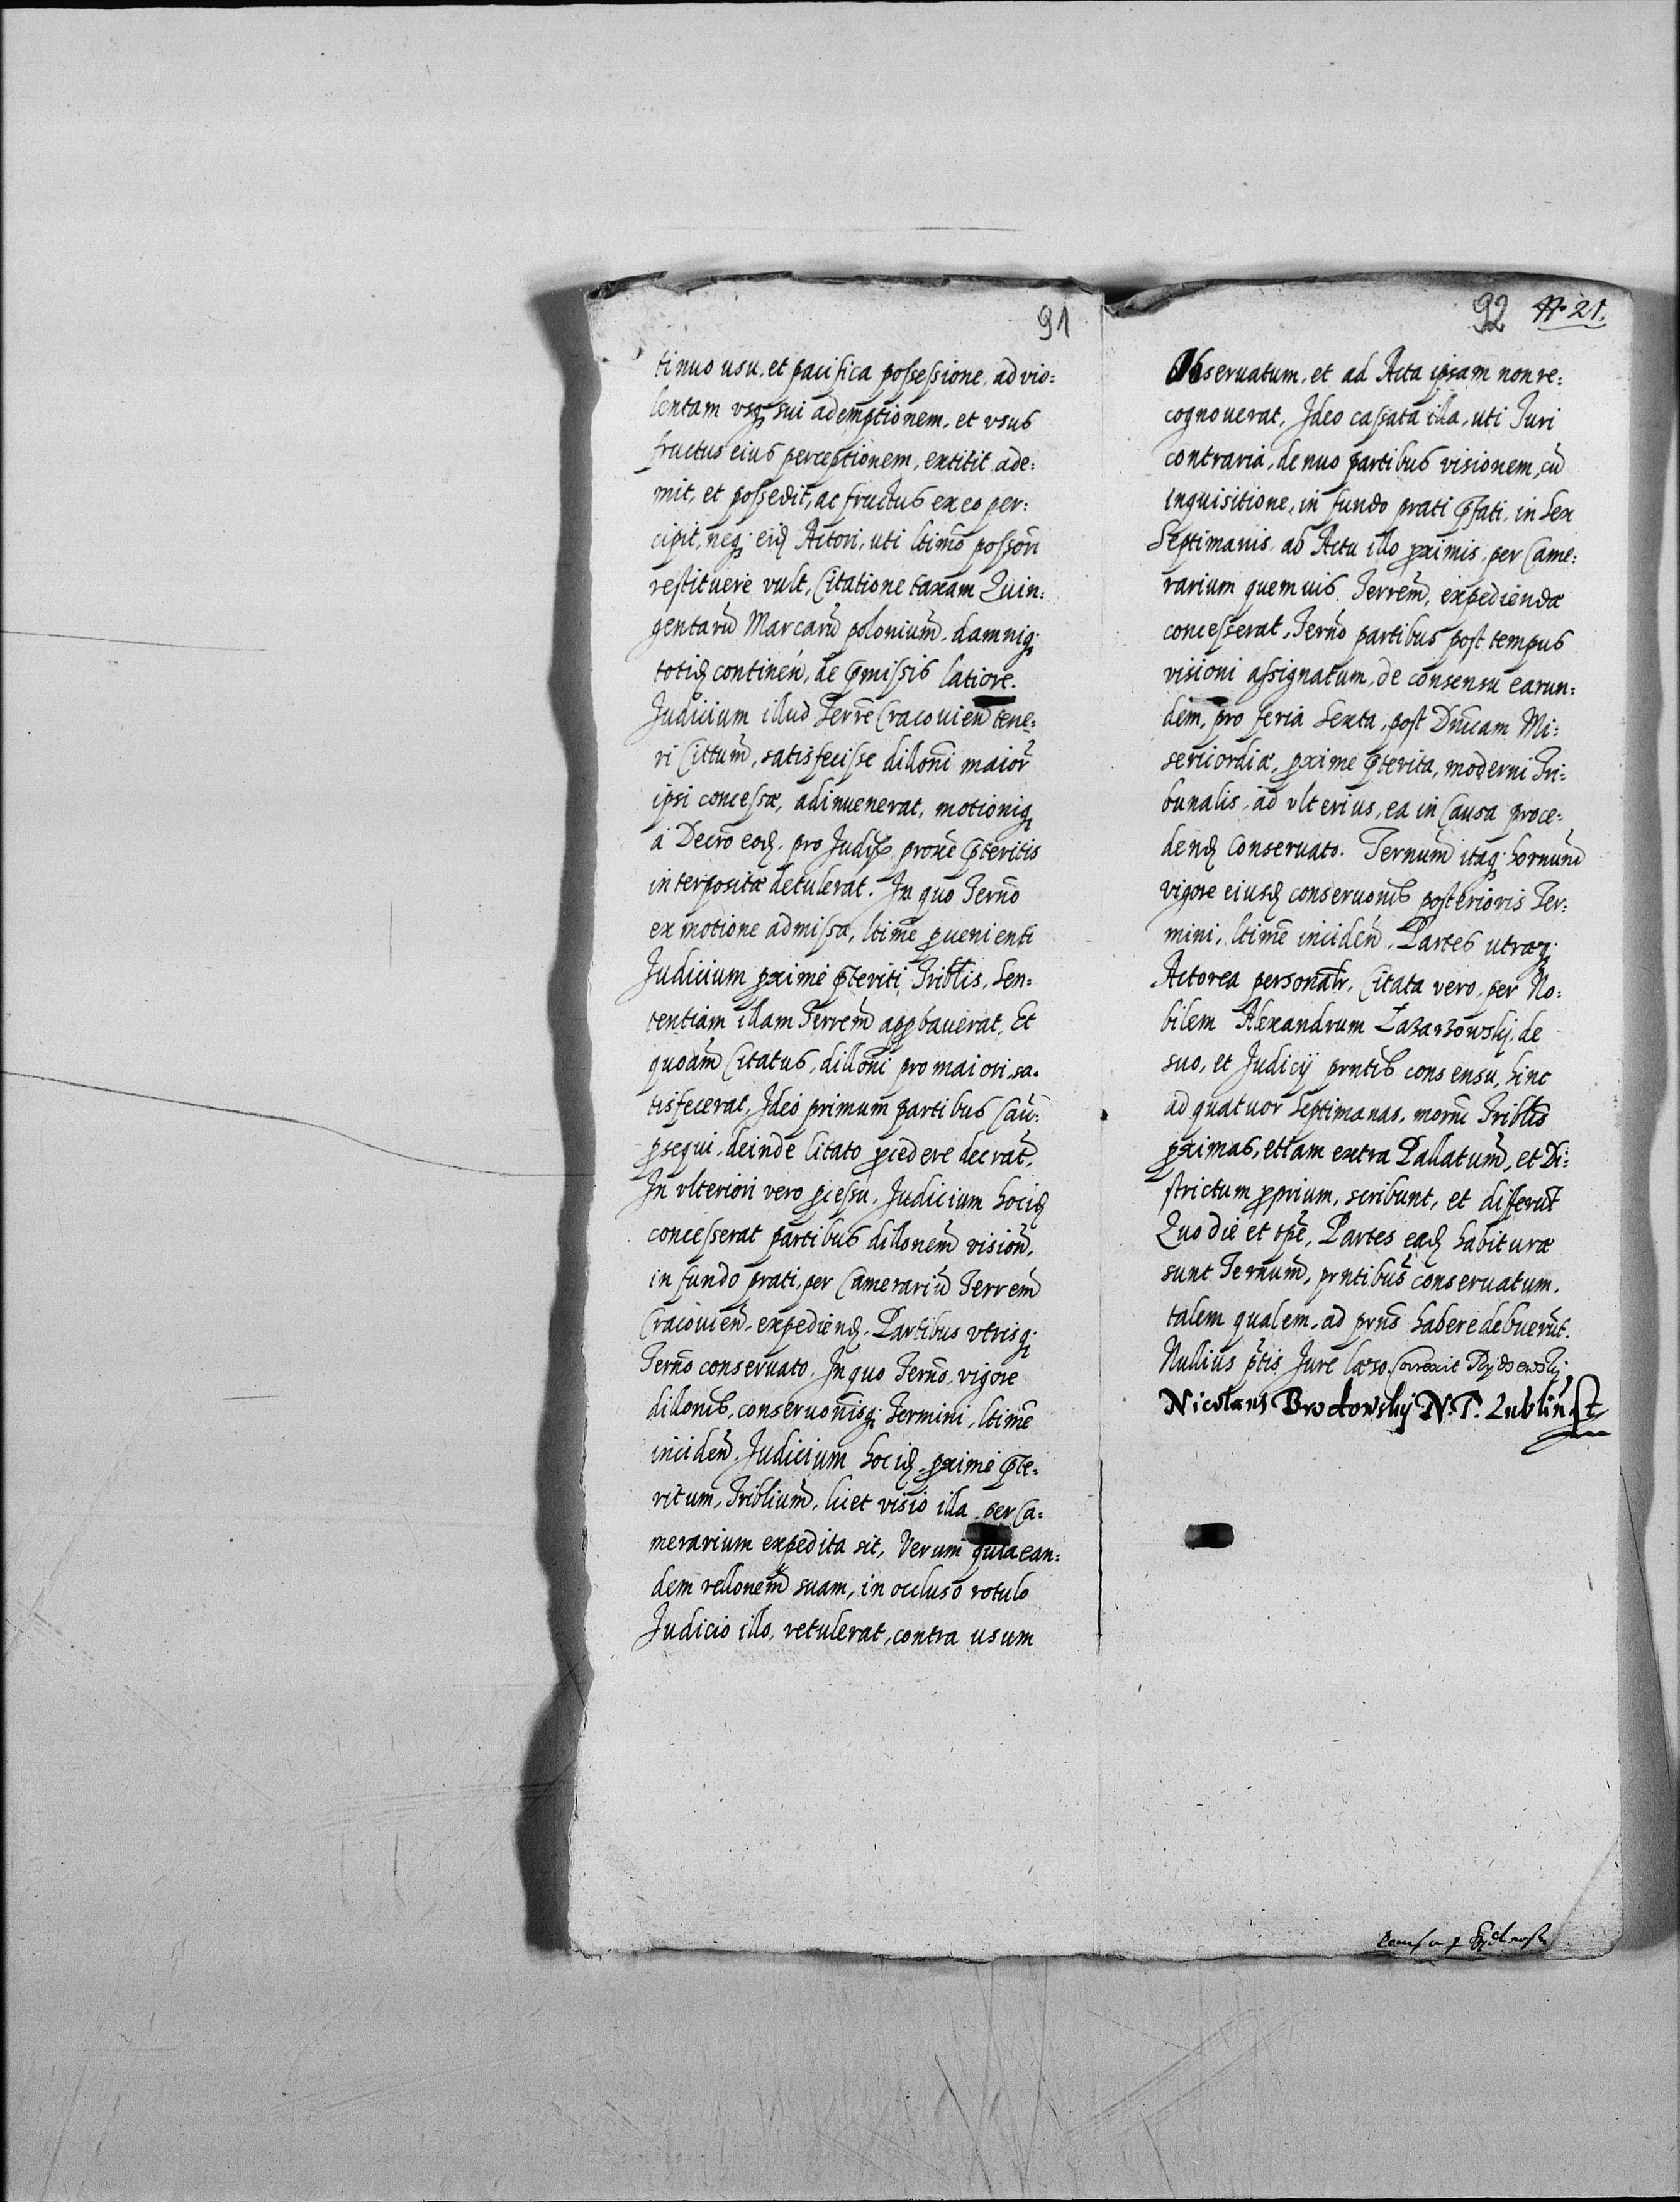 91
tinuo usu, et pacifica possessione, ad vio:
lentam vsq; sui ademptionem, et vsus
fructus eius perceptionem, extitit, ade:
mit, et possedit, ac fructus ex eo per:
cipit, neq; eid Actori, uti ltimo possori
restituere vult, Citatione taxam Quin:
gentarū Marcarū poloniūm, damniq;
totid continen, de p̄missis latiore.
Judicium illud Terre Cracouien tene:
ri Cittum, satisfecisse dilloni maior
ipsi concessæ, adinuenerat, motioniq;
a Decro eod, pro Judijs proxe p̄teritis
interpositæ detulerat. In quo Terno
ex motione admissa, ltime p̱uenienti
Judicium p̱xime p̄teriti Triblis, Sen:
tentiam illam Terrem app̱bauerat. Et
quoam Citatus, dilloni pro maiori, sa:
tisfecerat, Ideo primum partibus Cau:
p̱sequi, deinde Citato p̱cedere decrat,
In vlteriori vero p̱cessu, Judicium hocid
concesserat partibus dillonem vision,
in fundo prati, per Camerariū Terrem
Cracouien, expediend, Partibus vtrisq;
Terno conseruato. In quo Terno, vigore
dillonis, conseruonisq; Termini, ltime
inciden, Judicium hocid, p̱xime p̄te:
ritum, Triblium, licet visio illa per Ca:
merarium expedita sit, Verum quia ean:
dem rellonem suam, in occluso rotulo
Judicio illo, retulerat, contra usum
92 N. 21.
Obseruatum, et ad Acta ipsam non re:
cognouerat, Ideo cassata illa, uti Juri
contraria, denuo partibus visionem, cū
inquisitione, in fundo prati p̄fati, in Sex
Septimanis ab Actu illo p̱ximis, per Came:
rarium quemuis Terrem, expediendæ
concesserat, Terno partibus post tempus
visioni assignatum, de consensu earun:
dem, pro feria Sexta, post Dnicam Mi:
sericordiæ, p̱xime p̄terita, moderni Tri:
bunalis, ad vlterius, ea in Causa proce:
dend conseruato. Ternum itaq; hornum
vigore eiusd conseruonis posterioris Ter:
mini, ltime inciden, Partes utræq;
Actorea personalr, Citata vero, per No:
bilem Alexandrum Zakarzowskij, de
suo, et Judicij prntis consensu, hinc
ad quatuor Septimanas, morni Triblis
p̱ximas, etiam extra Pallatum, et Di:
strictum p̱prium, scribunt, et differūt
Quo die et tpe, Partes eæd habituræ
sunt Ternum, prntibus conseruatum.
talem qualem, ad prns habere debuerūt.
Nullius ptis Jure læso. Correxit
Nicolaus Brodowskij N. T. Lublin. st